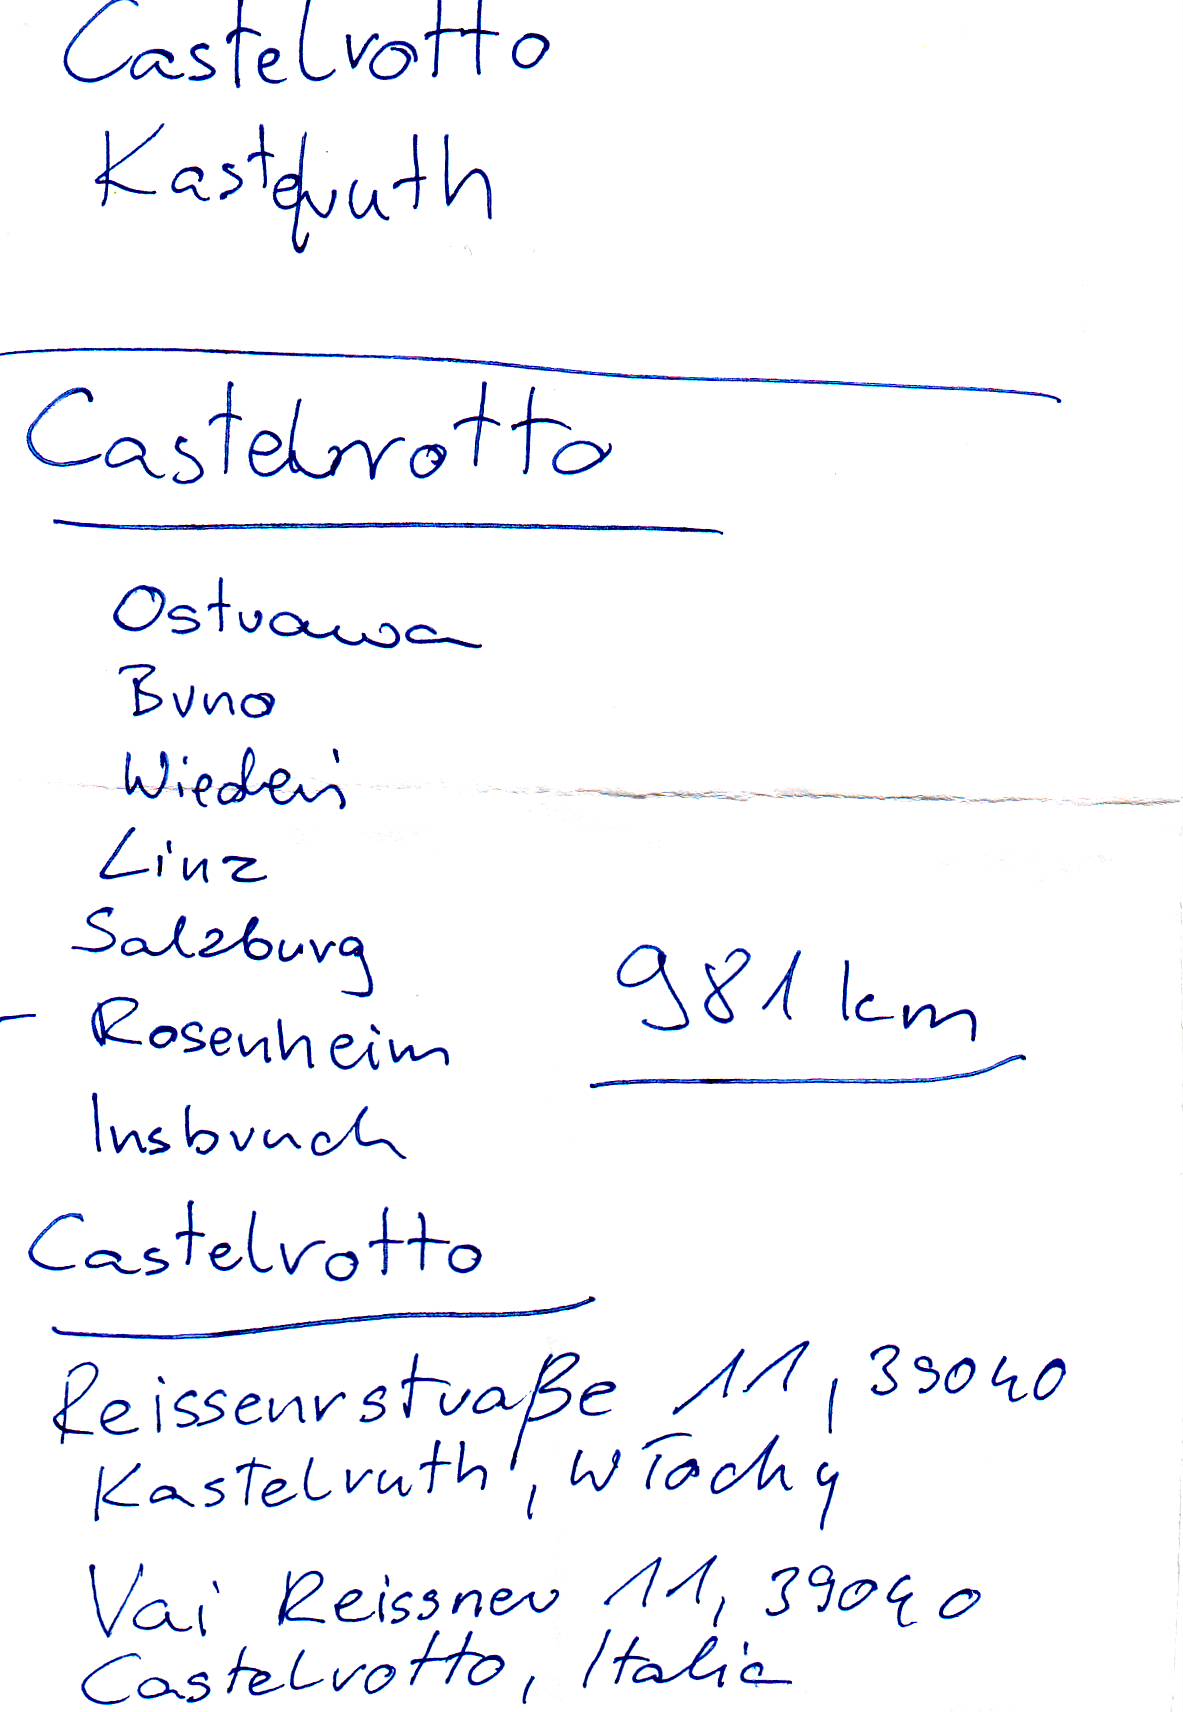 Castelrotto
Kastelruth
Castelrotto
Ostrawa
Brno
Wiedeń
Linz
Salzburg
- Rosenheim
981 km
Insbruch
Castelrotto
Reissenrstraße 11, 39040
Kastelruth, Włochy
Vai Reissner 11, 39040
Castelrotto, Italia